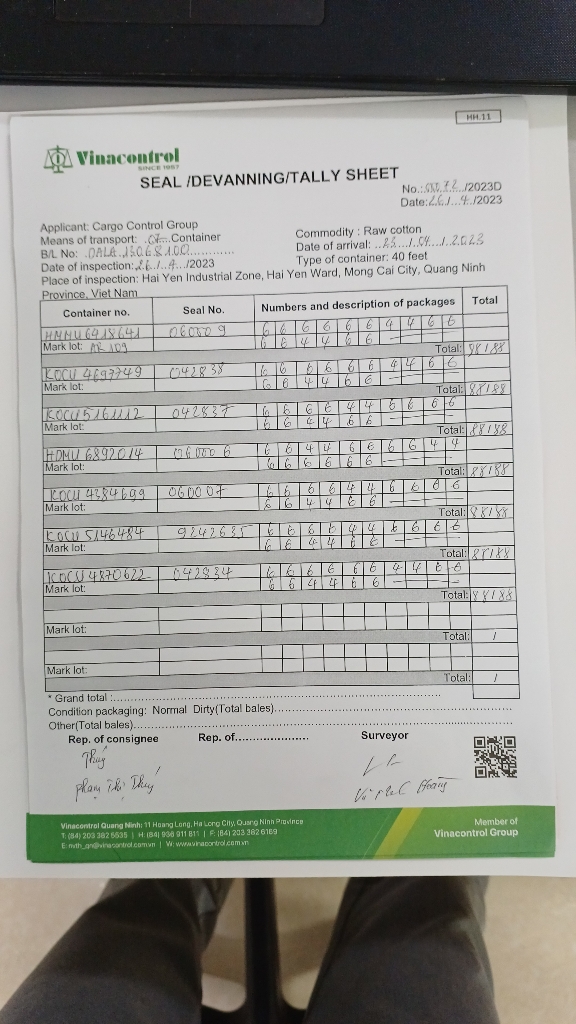 HH.11
Vinacontrol
SINCE 1957
SEAL /DEVANNING/TALLY SHEET
No.: /2023D
Date: 26/ 4 /2023
Applicant: Cargo Control Group
Means of transport: 07 Container
Commodity : Raw cotton
B/L No: DALA 13068100
Date of arrival: 23 / 04 / 2023
Date of inspection: 26/ 4 /2023
Type of container: 40 feet
Place of inspection: Hai Yen Industrial Zone, Hai Yen Ward, Mong Cai City, Quang Ninh
Province, Viet Nam
Container no. Seal No. Numbers and description of packages Total
HMMU6918641 060009 6 6 6 6 6 6 4 4 6 6
Mark lot: AR 109 6 6 4 4 6 6
Total: 88/88
KOCU 4697749 042838 6 6 6 6 6 6 4 4 6 6
Mark lot: 6 6 4 4 6 6
Total: 88/88
KOCU5161112 042837 6 6 6 6 4 4 6 6 6 6
Mark lot: 6 6 4 4 6 6
Total: 88/88
HDMU 6892014 060006 6 6 4 4 6 6 6 6 4 4
Mark lot: 6 6 6 6 6 6
Total: 88/88
KOCU 4384699 060007 6 6 6 6 4 4 6 6 6 6
Mark lot: 6 6 4 4 6 6
Total: 88/88
KOCU 5146484 9242635 6 6 6 6 4 4 6 6 6 6
Mark lot: 6 6 4 4 6 6
Total: 88/88
KOCU 4870622 042834 6 6 6 6 6 6 4 4 6 6
Mark lot: 6 6 4 4 6 6
Total: 88/88
Mark lot:
Total: /
Mark lot:
Total: /
* Grand total :
Condition packaging: Normal Dirty(Total bales)
Other(Total bales)
Rep. of consignee Rep. of Surveyor
Thuý
Phạm Thị Thuý
Vinacontrol Quang Ninh: 11 Hoang Long, Ha Long City, Quang Ninh Province
T: (84) 203 382 5535 | H: (84) 936 911 811 | F: (84) 203 382 6169
E: nvth_qn@vinacontrol.com.vn | W: www.vinacontrol.com.vn
Member of
Vinacontrol Group